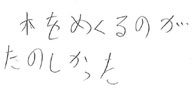 木をめくるのが
たのしかった